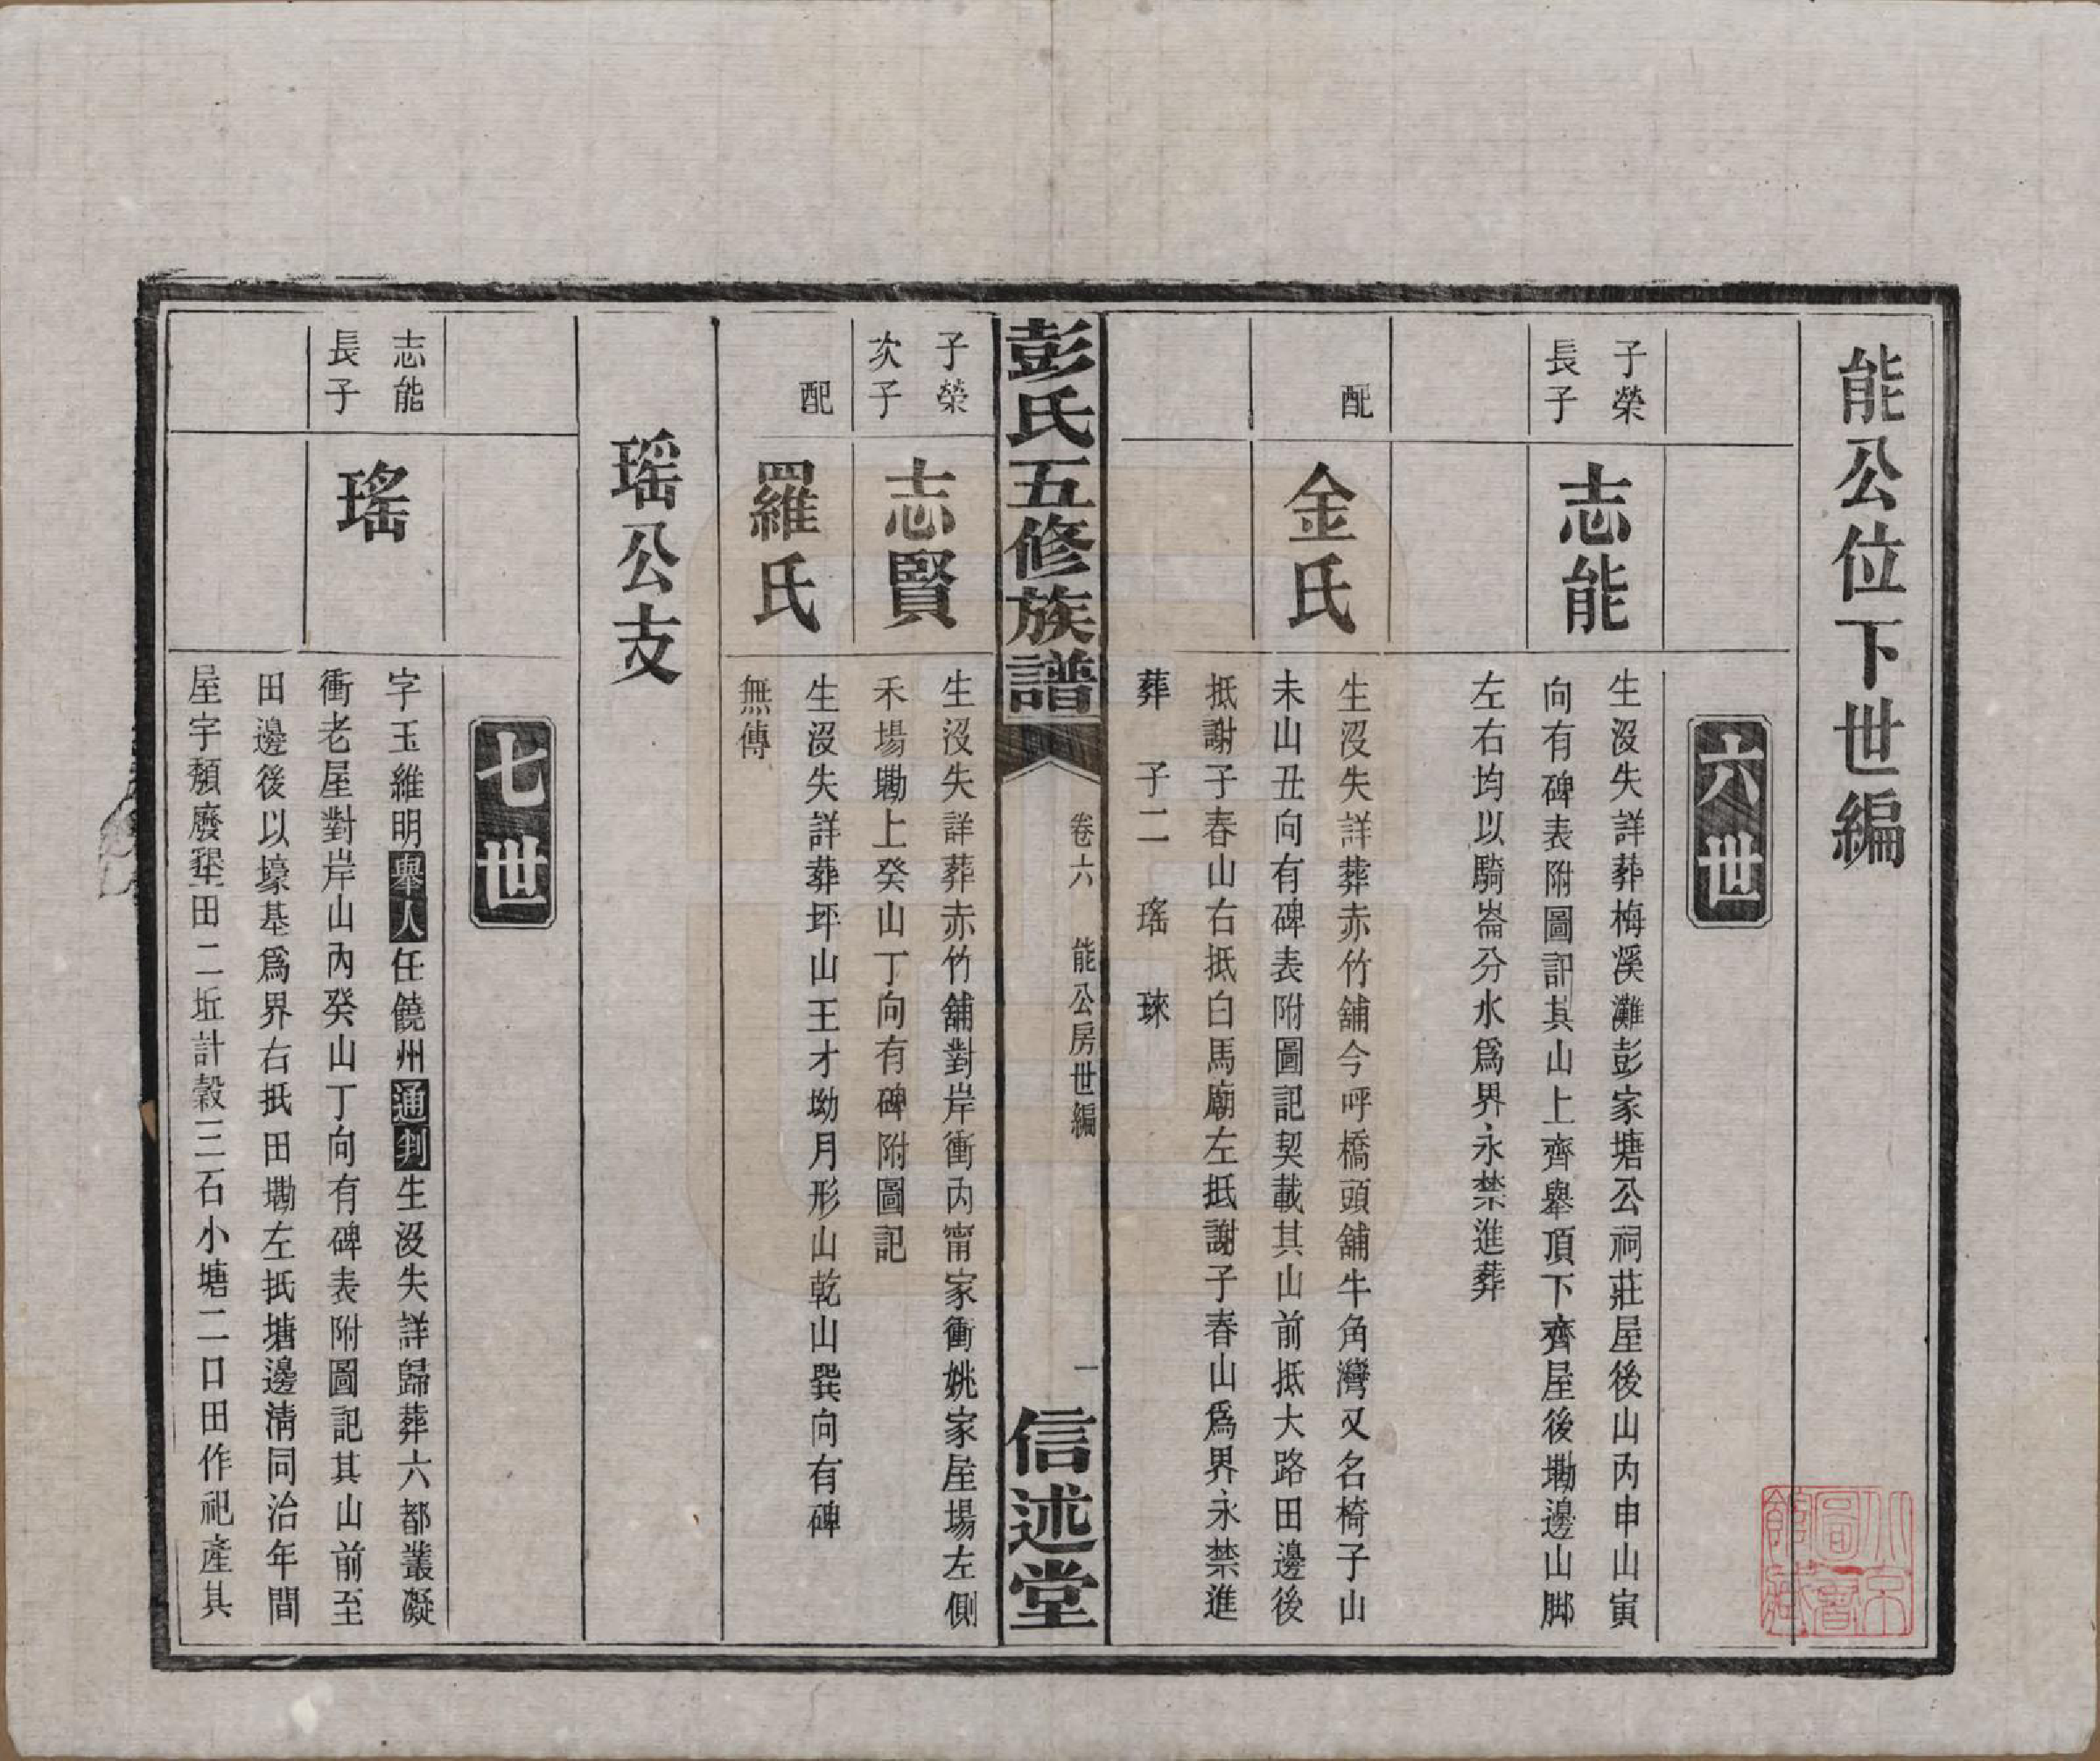 能公位下世編
六世
子榮
長子
志能
生沒失詳葬梅溪灘彭家塘公祠莊屋後山內申山寅
向有碑表附圖記其山上齊舉頂下齊屋後墈邊山脚
左右均以騎崙分水爲界永禁進葬
配
金氏
生沒失詳葬赤竹舖今呼橋頭舖牛角灣又名椅子山
未山丑向有碑表附圖記契載其山前抵大路田邊後
抵謝子春山右抵白馬廟左抵謝子春山爲界永禁進
葬 子二 瑤 琜
彭氏五修族譜
卷六 能公房世編
一
信述堂
子榮
次子
志賢
生沒失詳葬赤竹舖對岸衝內甯家衝姚家屋場左側
禾場墈上癸山丁向有碑附圖記
配
羅氏
生沒失詳葬坪山王才坳月形山乾山巽向有碑
無傳
瑶公支
七世
志能
長子
瑤
字玉維明舉人任饒州通判生沒失詳歸葬六都叢礙
衝老屋對岸山內癸山丁向有碑表附圖記其山前至
田邊後以壕基爲界右抵田墈左抵塘邊清同治年間
屋宇頽廢墾田二坵計穀三石小塘二口田作祀產其
北京圖書館藏